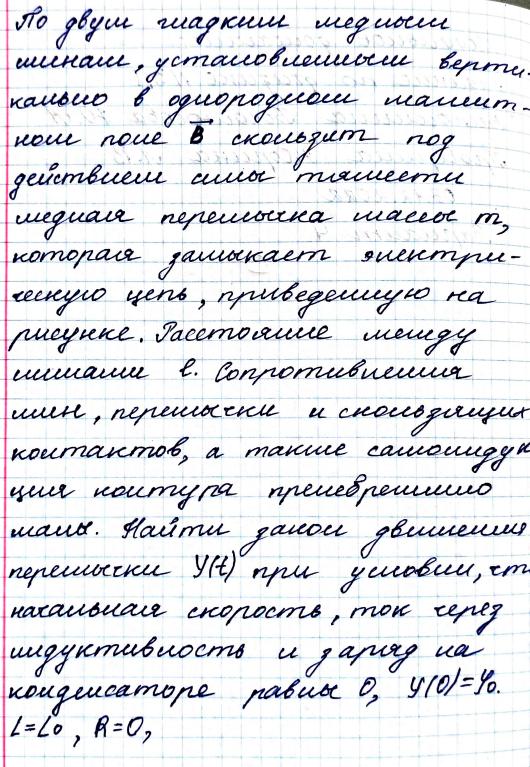 По двум гладким медным
шинам, установленным верти-
кально в однородном магнит-
ном поле B скользит под
действием силы тяжести
медная перемычка массы m,
которая замыкает электри-
ческую цепь, приведенную на
рисунке. Расстояние между
шинами l. Сопротивления
шин, перемычки и скользящих
контактов, а также самоиндук
ция контура пренебрежимо
малы. Найти закон движения
перемычки Y(t) при условии, чт
начальная скорость, ток через
индуктивность и заряд на
конденсаторе равны 0, Y(0)=Y₀.
L=L₀, R=0,